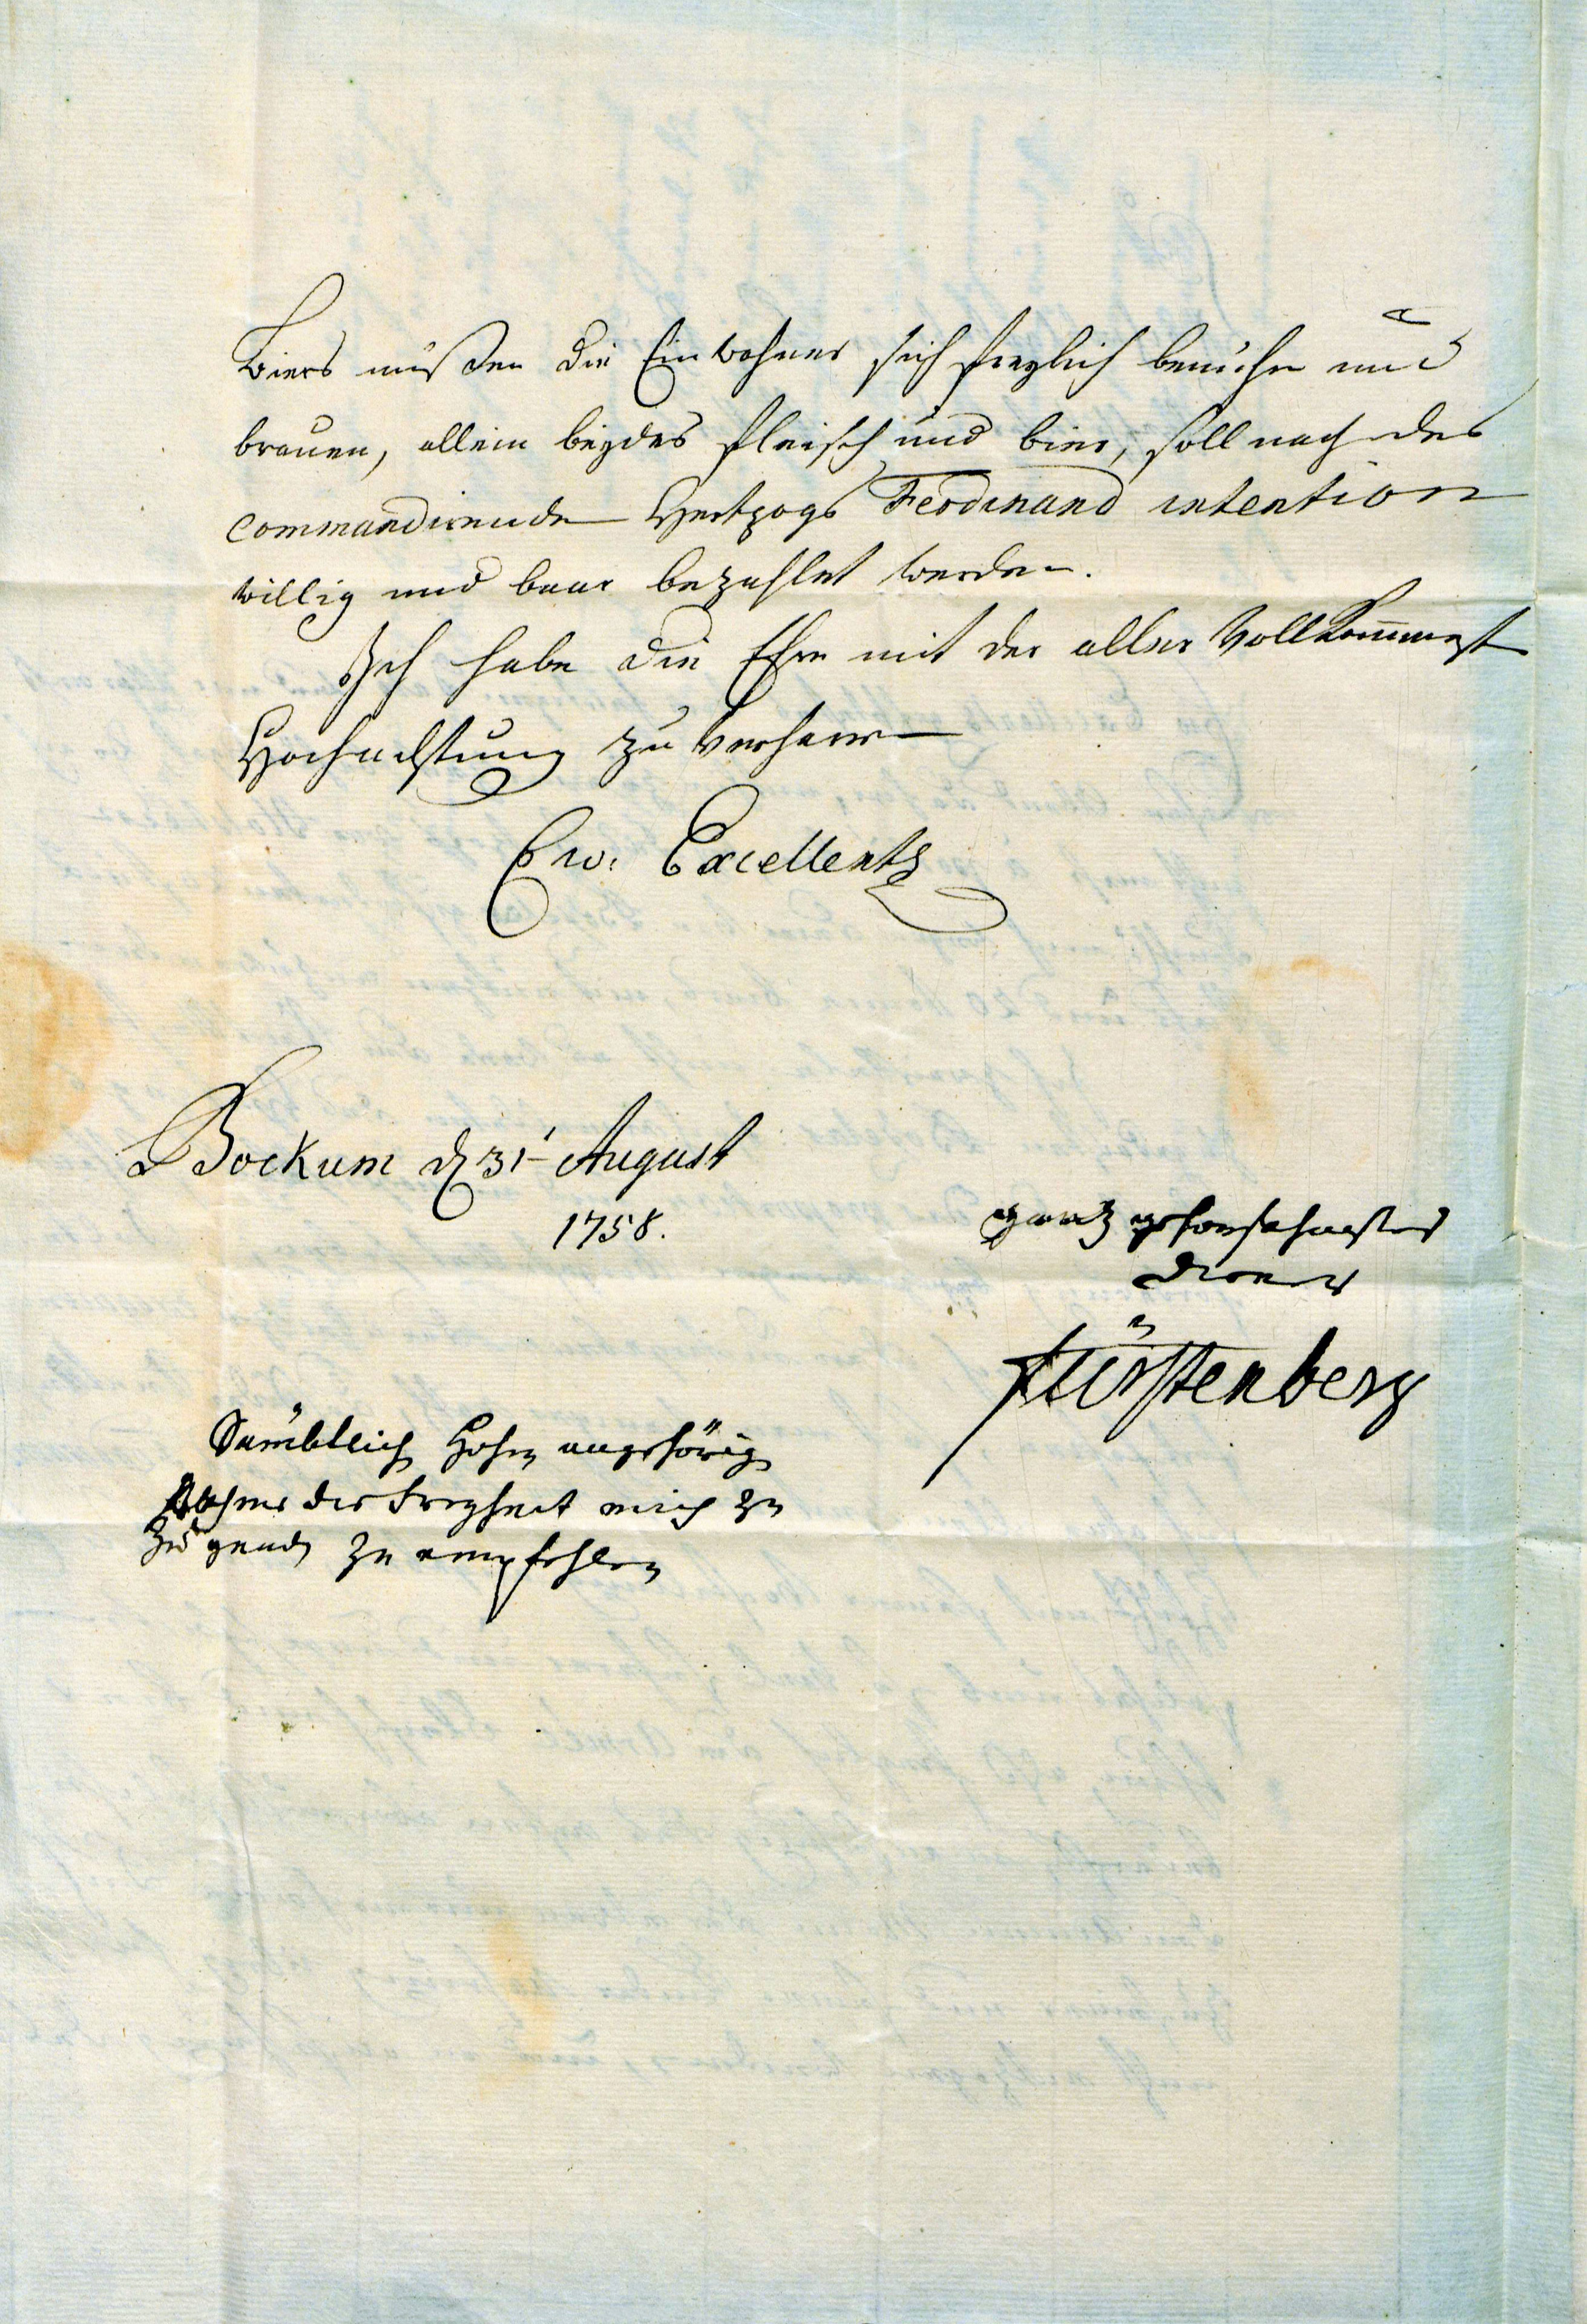 Biers müßen die Einwohner sich freylich bemühen und
brauen, allein beydes fleisch und bier, soll nach des
commandirenden Hertzogs Ferdinand intention
willig und baar bezahlet werden.
Ich habe die Ehre mit der aller Vollkommenst
Hochachtung zu verharren
Ew. Excellentz
Bockum d 31t August
1758.
gantz gehorsahmster
diener
fürstenberg
Sämbtlich Hohen angehörig
nehme die freyheit mich zu
zu gnaden zu empfehlen